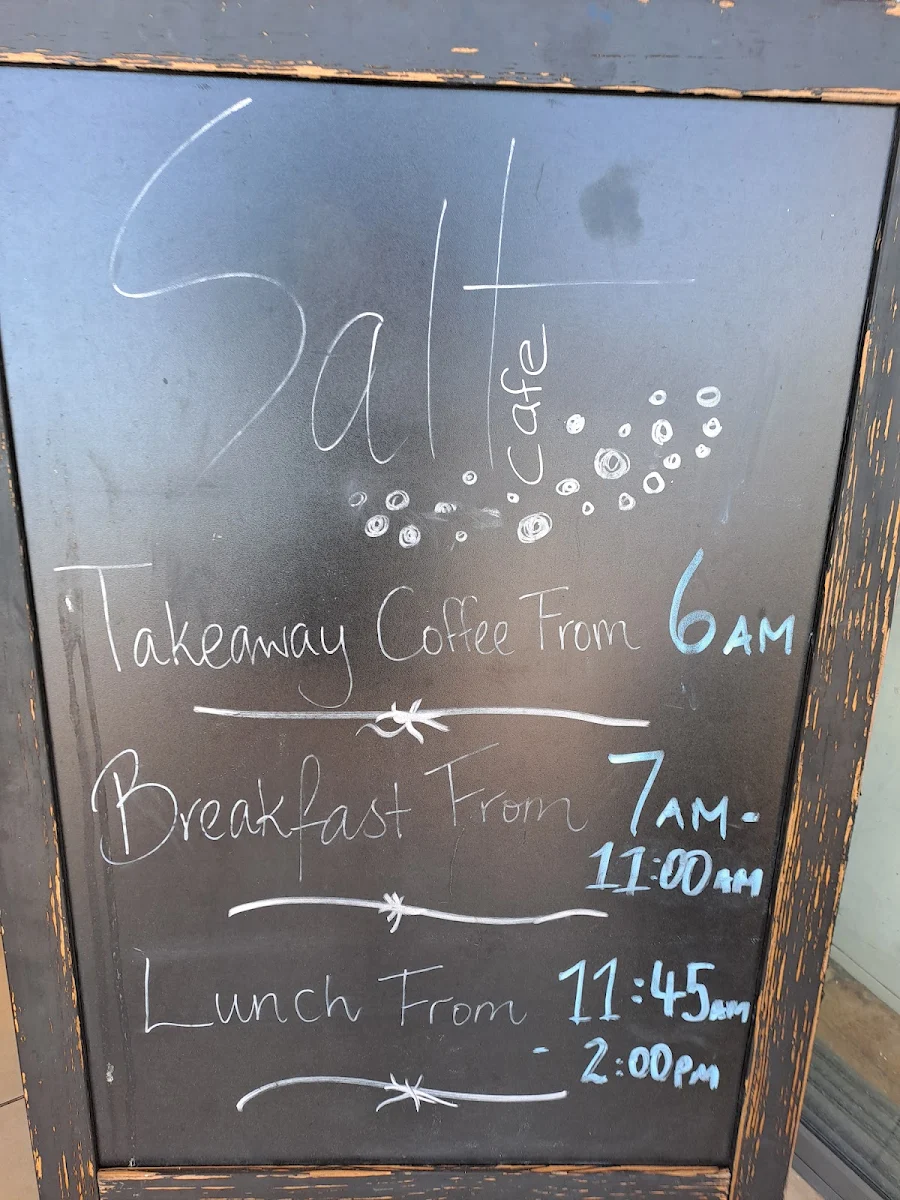 Salt
cafe
Takeaway Coffee From 6AM
Breakfast From 7AM-
11:00AM
Lunch From 11:45AM
- 2:00PM